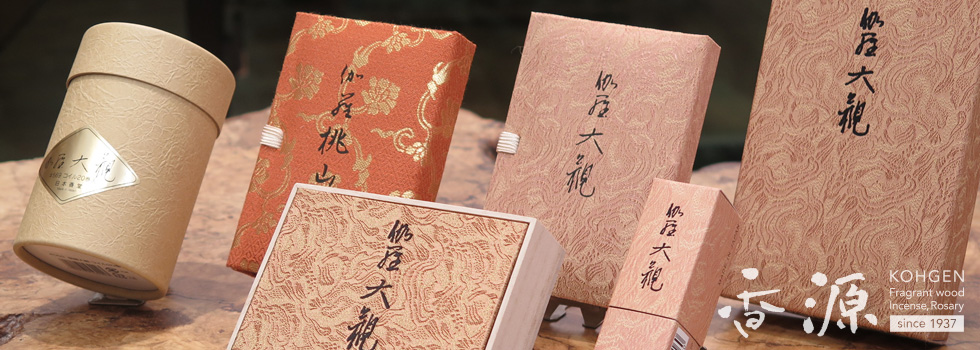 伽羅大観
伽羅桃山
伽羅大観
伽羅大観
伽羅大観
伽羅大観
香源
KOHGEN
Fragrant wood
Incense, Rosary
since 1937